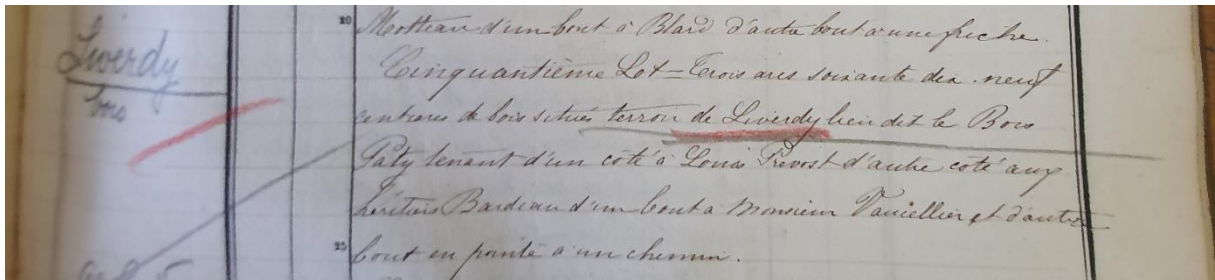 Liverdy
bois
20 Motteau d'un bout à Blard d'autre bout à une friche.
Cinquantième Lot = Trois ares soixante dix neuf
centiares de bois situés terroir de Liverdy lieu dit le Bois
Paty tenant d'un coté à Louis Prevost d'autre coté aux
héritiers Bardeau d'un bout à Monsieur et d'autre
25 bout en pointe à un chemin.